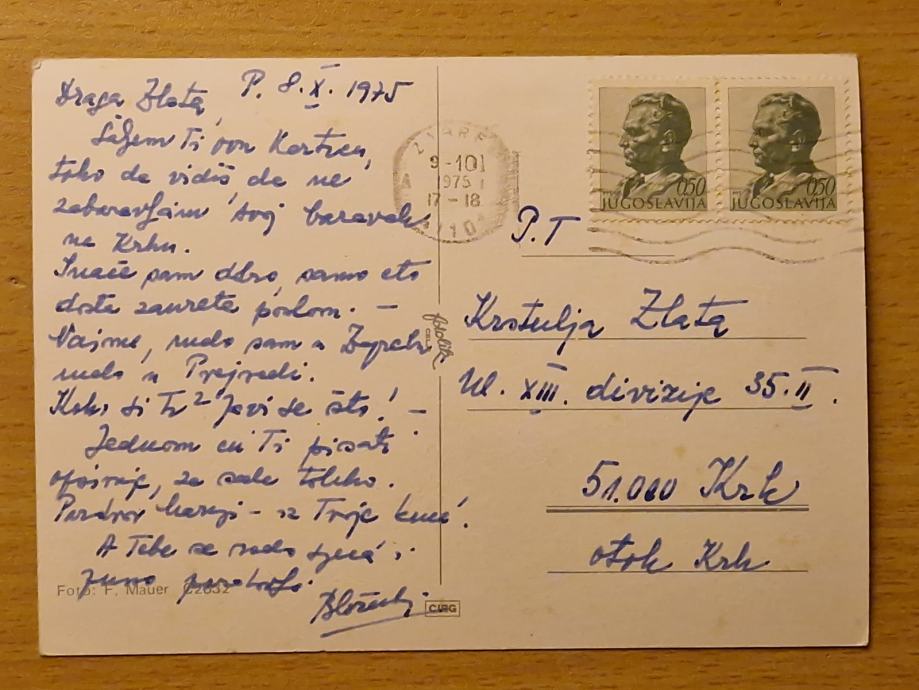 Draga Zlata, P. 8. X. 1975
Šaljem Ti ovu Karticu,
toko da vidiš da ne
zaboravljam svoj boravak
na Krku.
Inače sam dobro, samo eto
dosta zauzeta poslom. –
Naime, malo sam u Zagrebu
malo u Prejradi.
Kako si Ti? Javi se što! –
Jednom ću Ti pisati
opširnije, za sada toliko.
Pozdrav mami – iz Tvoje kuće!
A Tebe se rado sjeća i
puno pozdravlja
Foto: F. Mauer C2632
CIRG
9-10
1975
17 – 18
050
JUGOSLAVIJA
050
JUGOSLAVIJA
P.T
Krstulja Zlata
Ul. XIII. divizije 35.II.
51.000 Krk
otok Krk